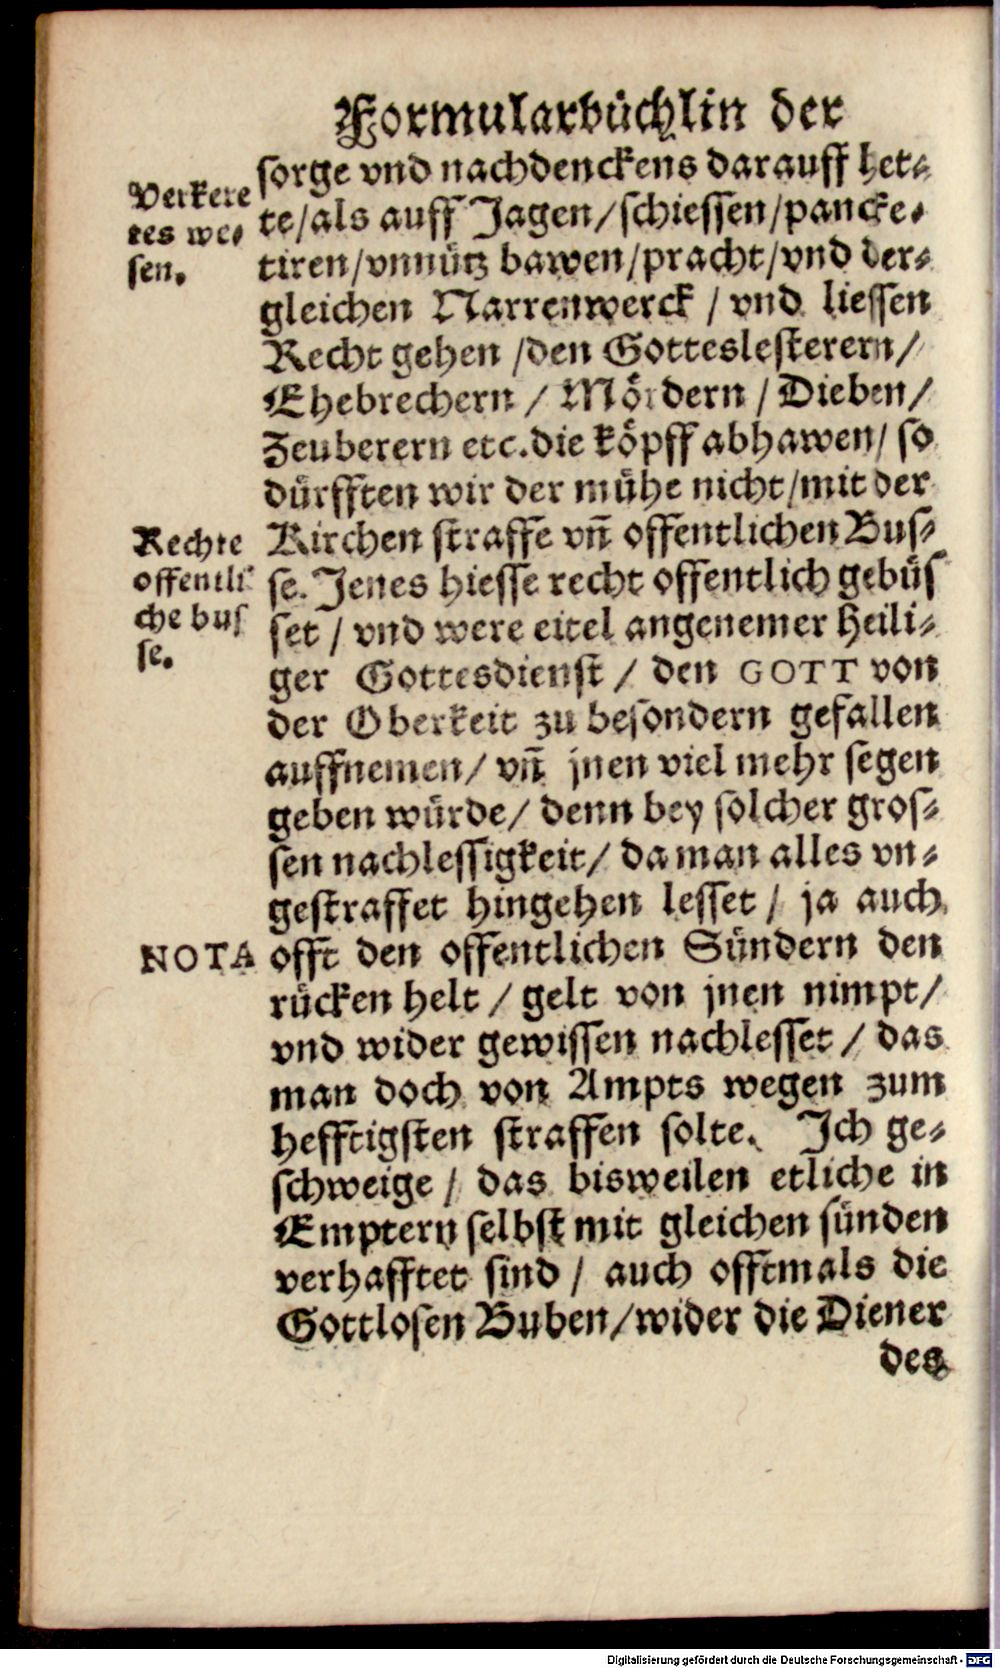 Formularbüchlin der
Verkere
tes we⸗
sen.
sorge vnd nachdenckens darauff het⸗
te/als auff Jagen/schiessen/pancke⸗
tiren/vnnütz bawen/pracht/vnd der⸗
gleichen Narrenwerck / vnd liessen
Recht gehen /den Gotteslesterern/
Ehebrechern / Mördern / Dieben/
Zeuberern etc.die köpff abhawen/ so
dürfften wir der mühe nicht/mit der
Rechte
offentli⸗
che bus
se.
Kirchen straffe vn̄ offentlichen Bus⸗
se. Jenes hiesse recht offentlich gebüs
set / vnd were eitel angenemer heili⸗
ger Gottesdienst / den GOTT von
der Oberkeit zu besondern gefallen
auffnemen/ vn̄ jnen viel mehr segen
geben würde/ denn bey solcher gros⸗
sen nachlessigkeit/ da man alles vn⸗
gestraffet hingehen lesset / ja auch
NOTA
offt den offentlichen Sündern den
rücken helt / gelt von jnen nimpt/
vnd wider gewissen nachlesset / das
man doch von Ampts wegen zum
hefftigsten straffen solte. Ich ge⸗
schweige / das bisweilen etliche in
Emptern selbst mit gleichen sünden
verhafftet sind / auch offtmals die
Gottlosen Buben/wider die Diener
des
Digitalisierung gefördert durch die Deutsche Forschungsgemeinschaft - DFG